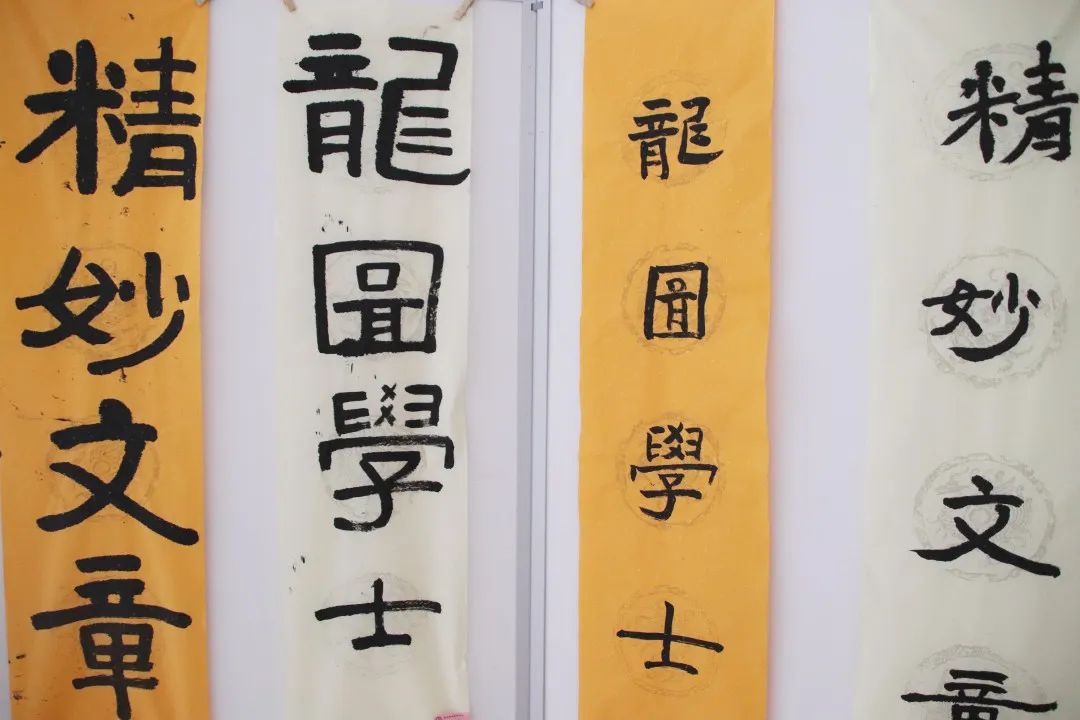 精妙文章
龍圖學士
龍圖學士
精妙文章